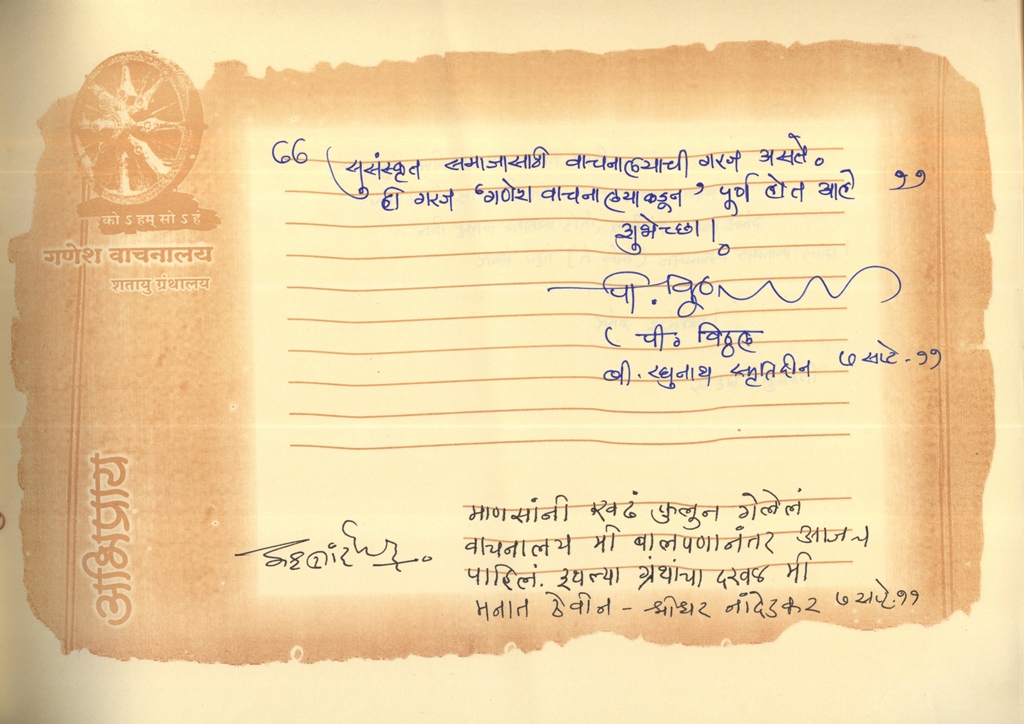 को ऽ हम सो ऽ हं
गणेश वाचनालय
शतायु ग्रंथालय
अभिप्राय
“ सुसंस्कृत समाजासाठी वाचनालयाची गरज असते.
ही गरज ‘गणेश वाचनालयाकडून’ पूर्ण होत आहे ”
शुभेच्छा !
पी. विठ्ठल
( पी. विठ्ठल
बी. रघुनाथ स्मृतिदीन ७ सप्टे - ११
माणसांनी एवढं फुलून गेलेलं
वाचनालय मी बालपणानंतर आजच
पाहिलं. इथल्या ग्रंथांचा दरवळ मी
मनात ठेवीन - श्रीधर नांदेडकर ७ सप्टे. ११